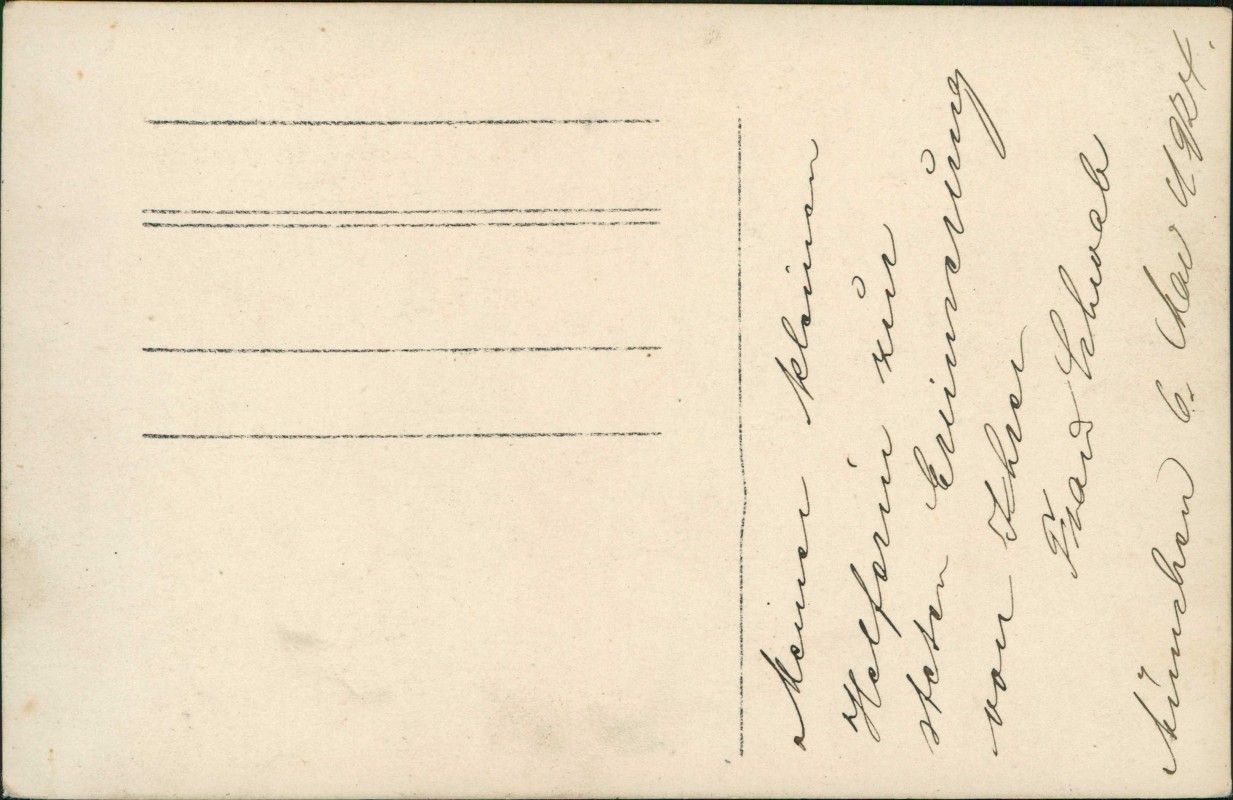 Meiner kleinen
Helferin zur
steten Erinnerung
von Ihrer
Frau Schwab
München 6. Mai 1924.